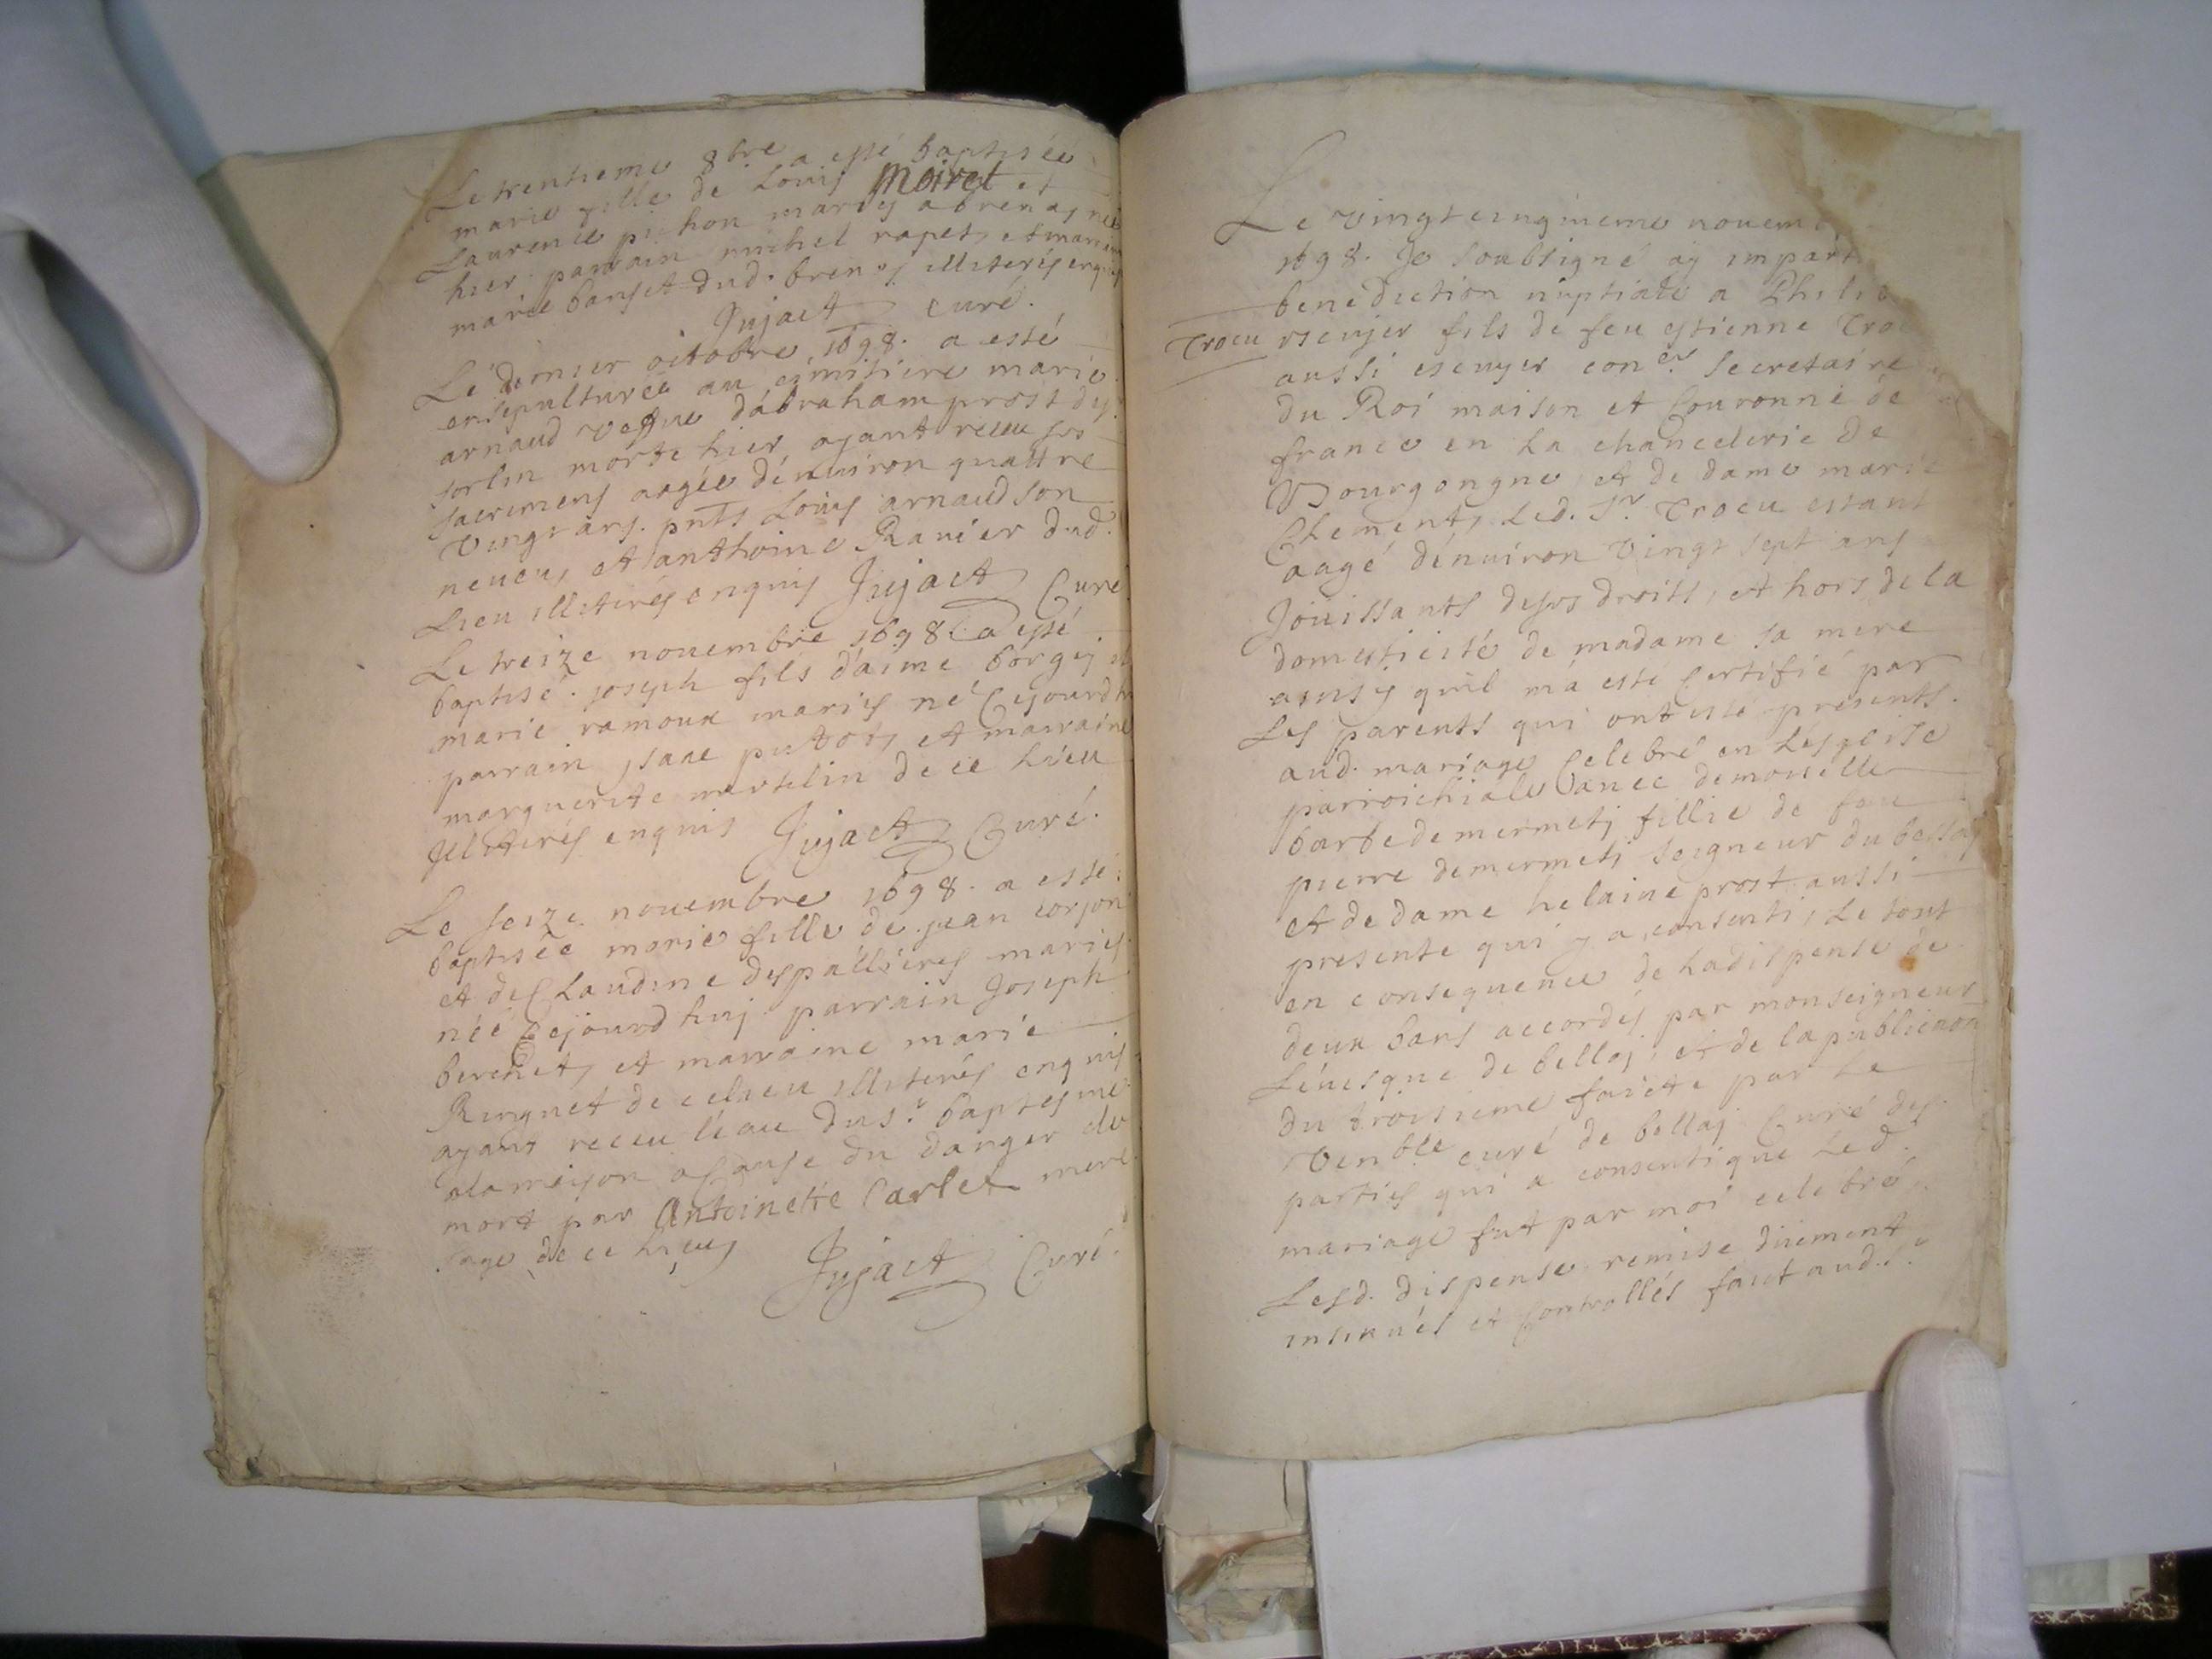 Le trentieme 8bre a esté baptisée
marie fille de Louis Moiret et
Laurence pichon mariés a brenas née
hier parrain michel rapet, et marraine
marie banset dud. brenas illiterés enquis
Jujact curé.
Le dernier octobre 1698. a esté
ensepulturée au cimitiere marie
arnaud vefve d'abraham prost de st
sorlin morte hier, ayant receu ses
sacremens aagée d'enuiron quattre
vingt ans. pnts Louis arnaud son
neueu, et anthoine Rauier dud.
Lieu illiterés enquis Jujact Curé
Le treize nouembre 1698. a esté
baptisé joseph fils d'aimé borgey et
marie ramoux mariés né Cejourdhu
parrain, isaac putod, et marraine
marguerite martelin de ce Lieu
Jlliterés enquis Jujact Curé.
Le seize nouembre 1698. a esté
baptisée marie fille de jean corjon
et de Claudine despallieres mariés
née Cejourd huj parrain Joseph
berchet, et marraine marie
Ringuet de ce lieu illiterés enquis
ayant receu l'eau du st baptesme
a la maison a Cause du danger de
mort par Antoinette Carlet mere
sage de ce Lieu,
Jujact Curé.
Le vingt cinquieme nouem
1698. Je soubsigné aÿ impart
benediction nuptiale a Phili
Trocu
escuyer fils de feu estienne Troc
aussi escuyer coner secretaire
du Roi maison et Couronne de
france en La chancelerie de
Bourgongne, et de dame marie
Chement, Led. Sr Trocu estant
aagé d'enuiron vingt sept ans
Joüissants de ses droits, et hors de la
domesticité de madame sa mere
ainsy quil m'a esté Certifié par
Les parents qui ont esté presents
aud. mariage Celebré en L'esglise
parroichiale auec demoiselle
barbe de mermety fillie de feu
pierre demermety seigneur du bessay
et de dame helaine prost aussi
presente qui y a consenti, Le tout
en consequence de La dispense de
deux bans accordés par monseigneur
L'euesque de bellay, et de la publication
du troisieme faicte par Le
Venble curé de bellay Curé des
parties qui a consenti que Led.
mariage fut par moi celebré,
Lesd. dispense remise düement
insinués et Controllés fait aud. s.